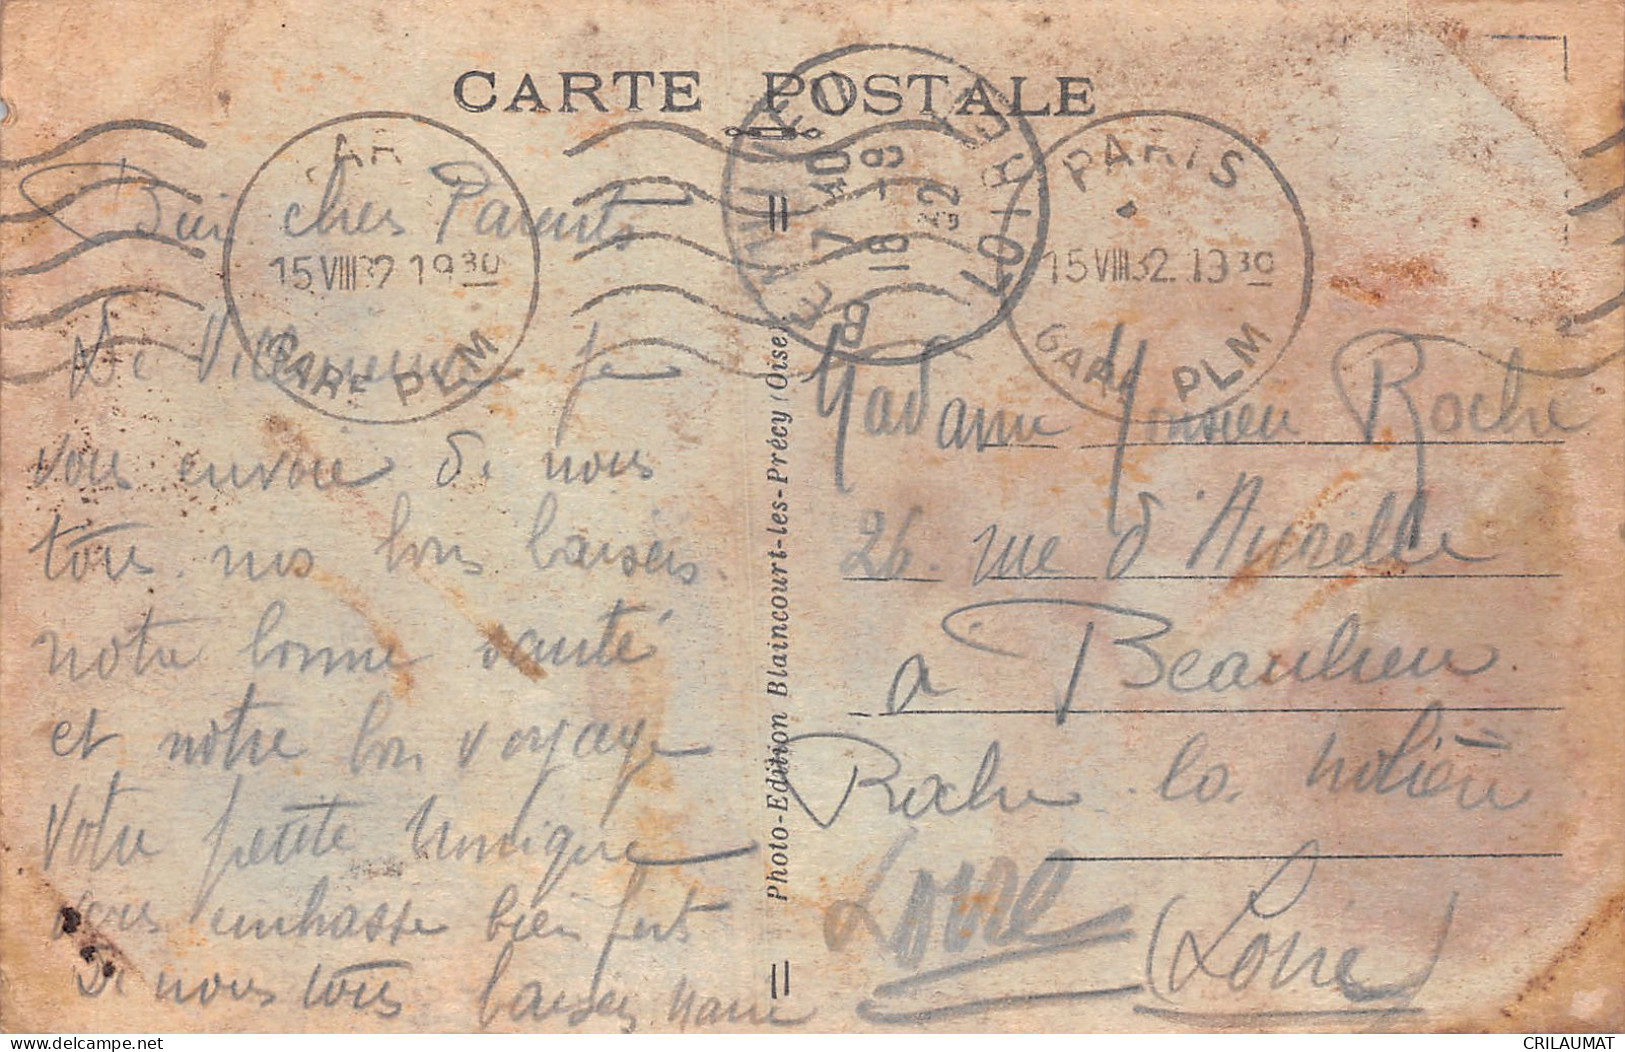 CARTE POSTALE
PARIS
15 VIII 32 19 30
GARE PLM
7 40
16 -8
32
LOIRE
PARIS
15 VIII 32 19 30
GARE PLM
Bien chers Parents
De je
vous envoie de nous
tous nos bons baisers
notre bonne santé
et notre bon voyage
Votre petite Monique
vous embrasse bien fort
De nous tous baisers
Photo-Edition Blaincourt-les-Précy (Oise)
Madame Monsieur Roche
26 rue d'Aurelle
a Beaulieu
Roche la Molière
Loire
(Loire)
CRILAUMAT